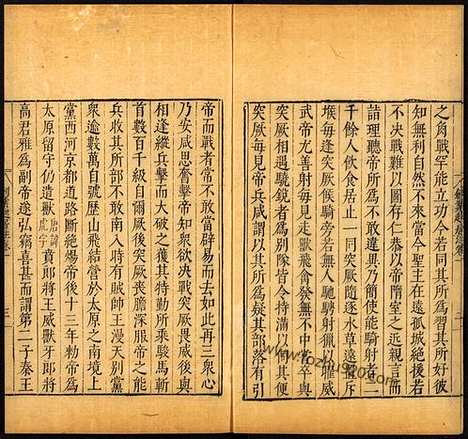 之角戰罕能立功今若同其所爲習其所好彼
知無利自然不來當今聖主在遠孤城絕援若
不決戰難以圖存仁恭以帝隋室之近親言而
詣理聽帝所爲不敢違異乃簡使能騎射者二
千餘人飲食居止一同突厥隨逐水草遠置斥
堠每逢突厥候騎旁若無人馳騁射獵以曜威
武帝尤善射每見走獸飛禽發無不中嘗卒與
突厥相遇驍銳者爲別隊皆令持滿以伺其便
突厥每見帝兵咸謂以其所爲疑其部落有引
帝而戰者常不敢當辟易而去如此再三衆心
乃安咸思奮擊帝知衆欲決戰突厥畏威後與
相逢縱兵擊而大破之獲其特勤所乘駿馬斬
首數百千級自爾厥後突厥喪膽深服帝之能
兵收其所部不敢南入時有賊帥王漫天別黨
衆逾數萬自號歷山飛結營於太原之南境上
黨西河京都道路斷絕煬帝後十三年勅帝爲
太原留守仍遣獸唐諱虎字賁郎將王威獸牙郎將
高君雅爲副帝遂弘竊喜甚而謂第二子秦王